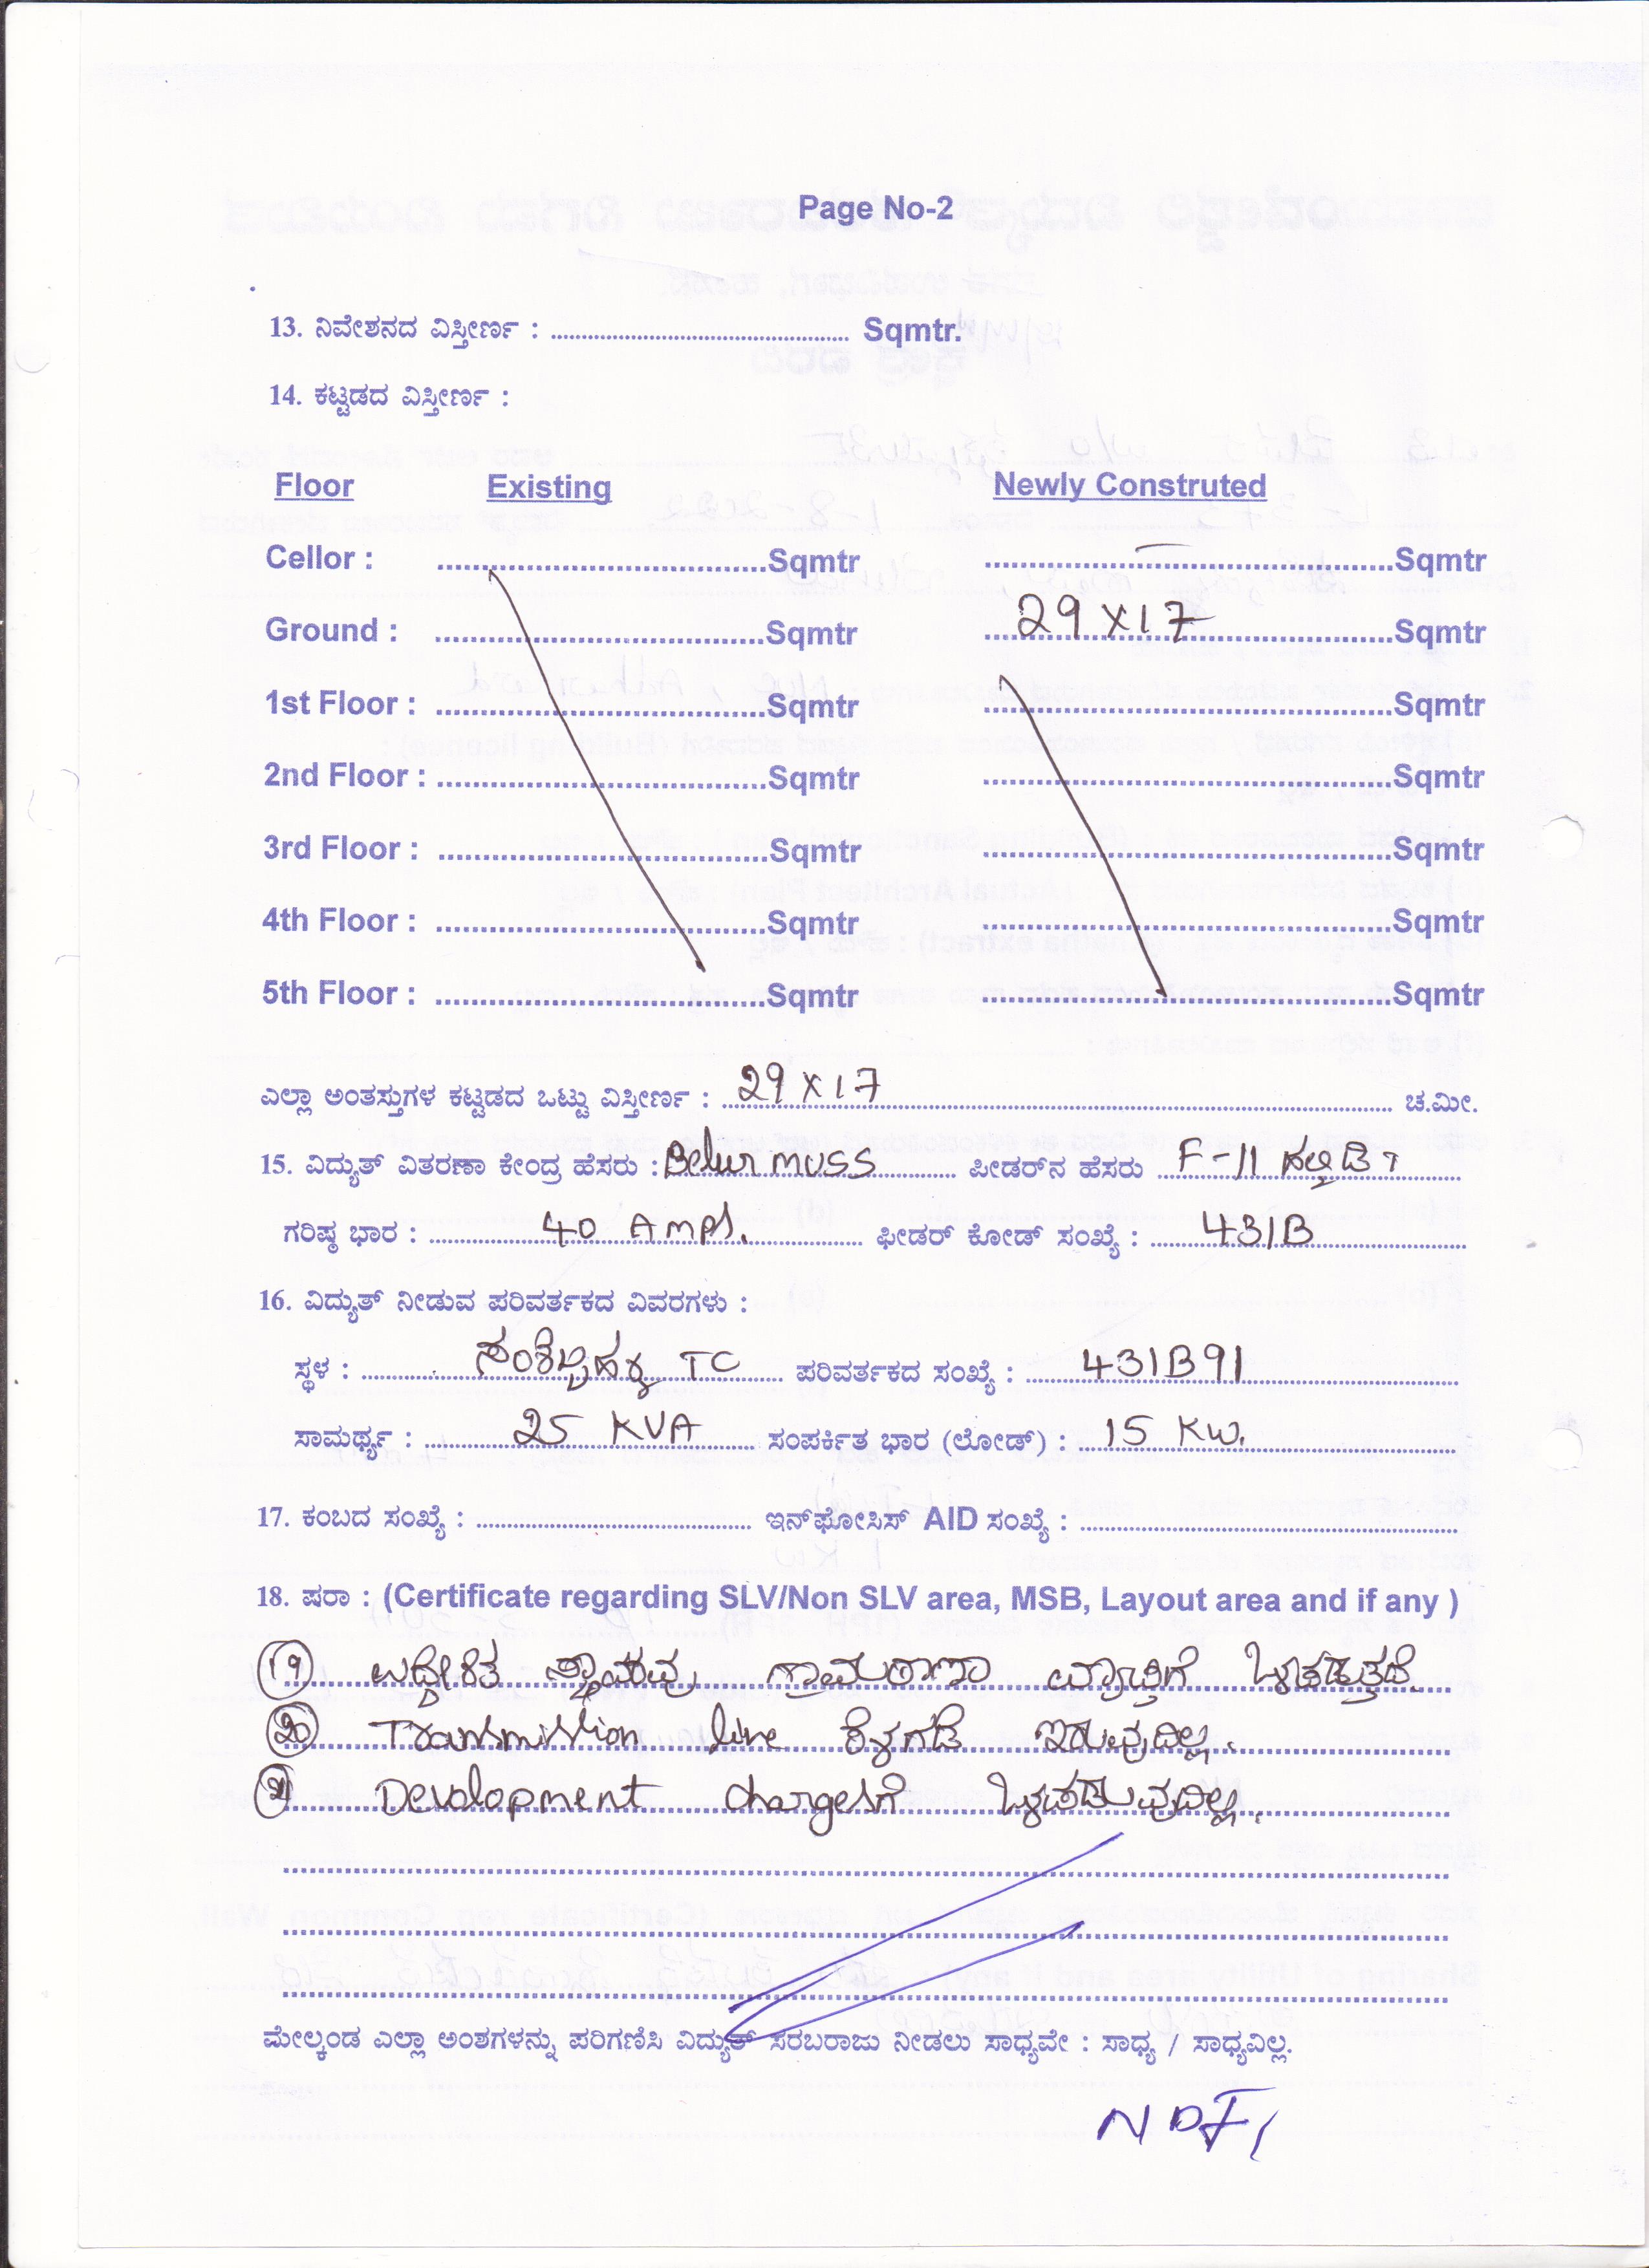 Page No-2
13. ನಿವೇಶನದ ವಿಸ್ತೀರ್ಣ : Sqmtr.
14. ಕಟ್ಟಡದ ವಿಸ್ತೀರ್ಣ :
Floor Existing Newly Construted
Cellor : Sqmtr Sqmtr
Ground : Sqmtr 29 X 17 Sqmtr
1st Floor : Sqmtr Sqmtr
2nd Floor : Sqmtr Sqmtr
3rd Floor : Sqmtr Sqmtr
4th Floor : Sqmtr Sqmtr
5th Floor : Sqmtr Sqmtr
ಎಲ್ಲಾ ಅಂತಸ್ತುಗಳ ಕಟ್ಟಡದ ಒಟ್ಟು ವಿಸ್ತೀರ್ಣ : 29 X 17 ಚ.ಮೀ.
15. ವಿದ್ಯುತ್ ವಿತರಣಾ ಕೇಂದ್ರ ಹೆಸರು : Belur MUSS ಪೀಡರ್‌ನ ಹೆಸರು F-11
ಗರಿಷ್ಠ ಭಾರ : 40 Amps. ಫೀಡರ್ ಕೋಡ್ ಸಂಖ್ಯೆ : 431B
16. ವಿದ್ಯುತ್ ನೀಡುವ ಪರಿವರ್ತಕದ ವಿವರಗಳು :
ಸ್ಥಳ : TC ಪರಿವರ್ತಕದ ಸಂಖ್ಯೆ : 431B91
ಸಾಮರ್ಥ್ಯ : 25 KVA ಸಂಪರ್ಕಿತ ಭಾರ (ಲೋಡ್) : 15 KW.
17. ಕಂಬದ ಸಂಖ್ಯೆ : ಇನ್‌ಫೋಸಿಸ್ AID ಸಂಖ್ಯೆ :
18. ಷರಾ : (Certificate regarding SLV/Non SLV area, MSB, Layout area and if any )
ಉದ್ದೇಶಿತ ಸ್ಥಾವರವು ಗ್ರಾಮಠಾಣಾ ವ್ಯಾಪ್ತಿಗೆ ಒಳಪಡುತ್ತದೆ.
Transmission line ಕೆಳಗಡೆ ಇರುವುದಿಲ್ಲ.
Development chargesಗೆ ಒಳಪಡುವುದಿಲ್ಲ.
ಮೇಲ್ಕಂಡ ಎಲ್ಲಾ ಅಂಶಗಳನ್ನು ಪರಿಗಣಿಸಿ ವಿದ್ಯುತ್ ಸರಬರಾಜು ನೀಡಲು ಸಾಧ್ಯವೇ : ಸಾಧ್ಯ / ಸಾಧ್ಯವಿಲ್ಲ.